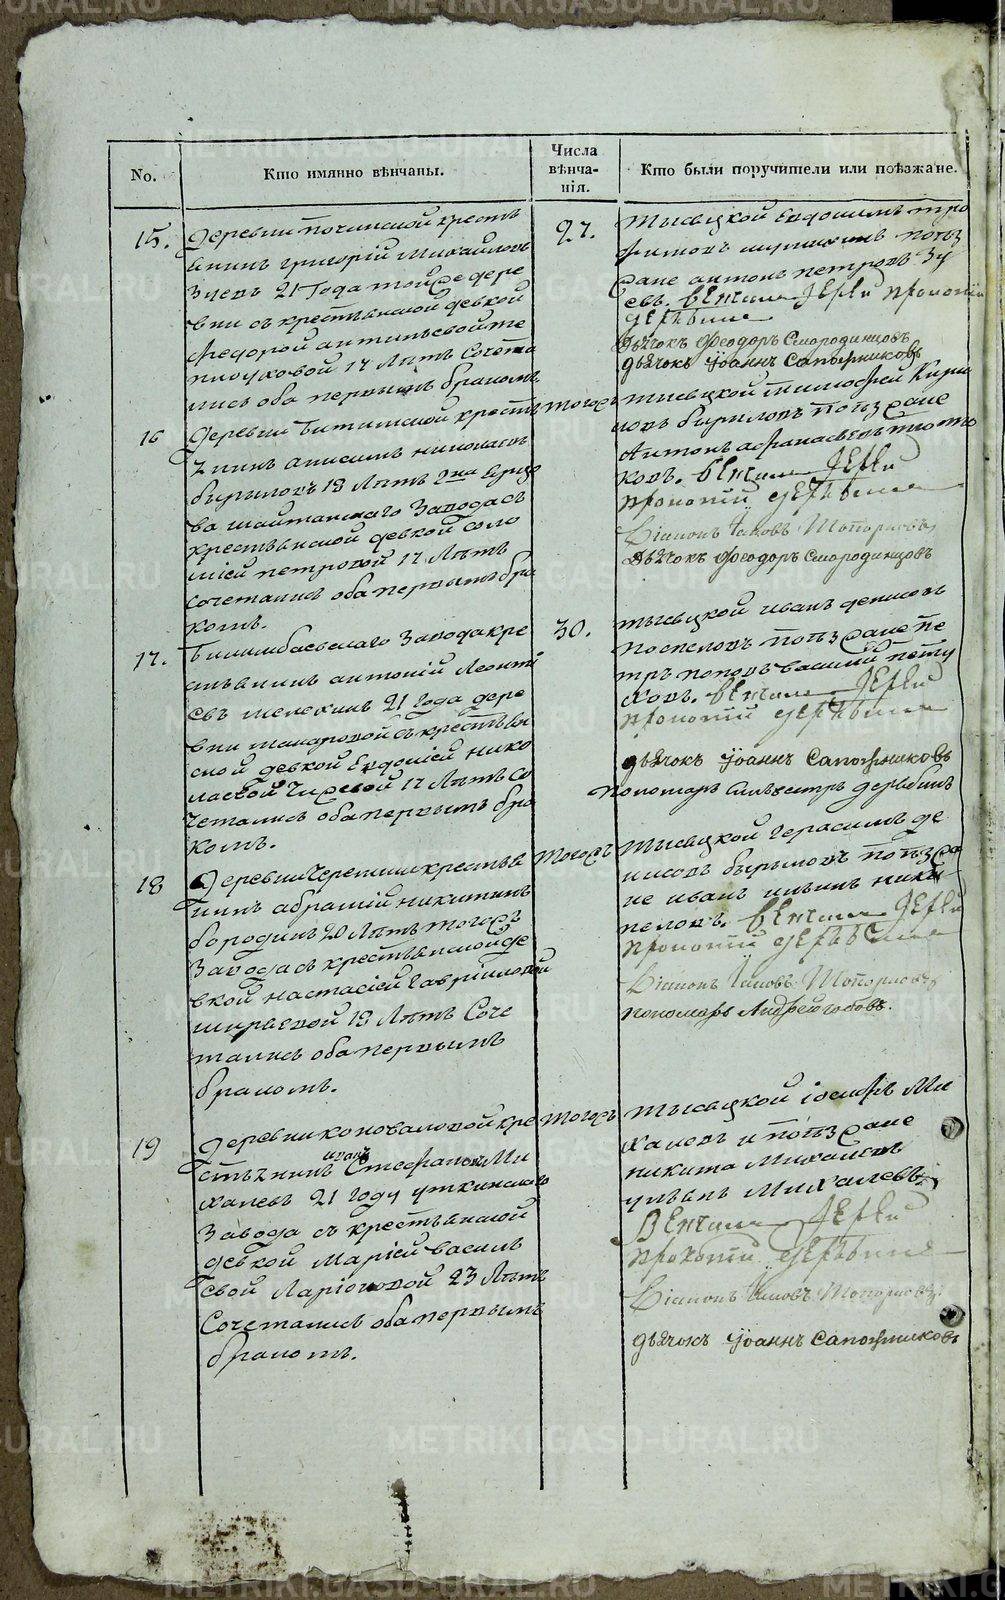 No.
Кто имянно вѣнчаны.
Числа
вѣнча-
нія.
Кто были поручители или поѣзжане.
15.
Деревни Починской кресть
янинъ григорій Михайловъ
Зуевъ 21 Года той же дере
вни съ крестьянской девкой
федорой антипьевой те
плоуховой 17 Лѣтъ Сочета
лись оба первымъ бракомъ.
27.
тысяцкой Евдокимъ тро
фимовъ поѣз
жане антонъ петровъ Зу
евъ. Венчали Иереи прокопій
дерябинъ
Дьячокъ Феодоръ Смородинцовъ
дьячокъ Іоаннъ Сапожниковъ
16
Деревни Битимской кресть
янинъ анисимъ николаевъ
18 Лѣтъ
ва шайтанскаго Завода съ
крестьянской девкой соло
міей петровой 17 Лѣтъ
сочетались оба первымъ бра
комъ.
тогожъ
тысяцкой тимофей Кири
ловъ поѣзжане
Антонъ афанасьевъ
ковъ. Венчали Иереи
прокопій дерябинъ
Діаконъ Іаковъ Топорковъ
Дьячокъ Феодоръ Смородинцовъ
17.
Билимбаевскаго Завода кре
стьянинъ антоній Леонті
евъ шелехинъ 21 Года дере
вни макаровой съ крестьян
ской девкой Евдокіей нико
лаевой 17 Лѣтъ со
четались оба первымъ бра
комъ.
30.
тысяцкой иванъ денисовъ
поспеловъ поѣзжане пе
тръ поповъ василій пету
ховъ. Венчали Иереи
прокопій дерябинъ
дьячокъ Іоаннъ Сапожниковъ
пономарь силвестръ дерябинъ
18
Деревни Черемши крестья
нинъ абрамій никитинъ
бородинъ 20 Лѣтъ тогожъ
Завода съ крестьянской де
вкой настасіей Гавріиловой
ширяевой 18 Лѣтъ Соче
тались оба первымъ
бракомъ.
тогожъ
тысяцкой Герасимъ де
нисовъ поѣзжа
не иванъ ильинъ ники
пеловъ. Венчали Иереи
прокопій дерябинъ
Діаконъ Іаковъ Топорковъ
пономарь Андрей
19
Деревни коноваловой кре
стьянинъ иванъ Стефановъ Ми
халевъ 21 Году уткинскаго
Завода съ крестьянской
девкой Маріей василь
евой Ларіоновой 23 Лѣтъ
Сочетались оба первымъ
бракомъ.
тогожъ
тысяцкой іосифъ Ми
халевъ и поѣзжане
никита Михалевъ
ульянъ Михалевъ
Венчали Иереи
прокопій дерябинъ
Діаконъ Іаковъ Топорковъ
дьячокъ Іоаннъ Сапожниковъ
METRIKI.GASO-URAL.RU